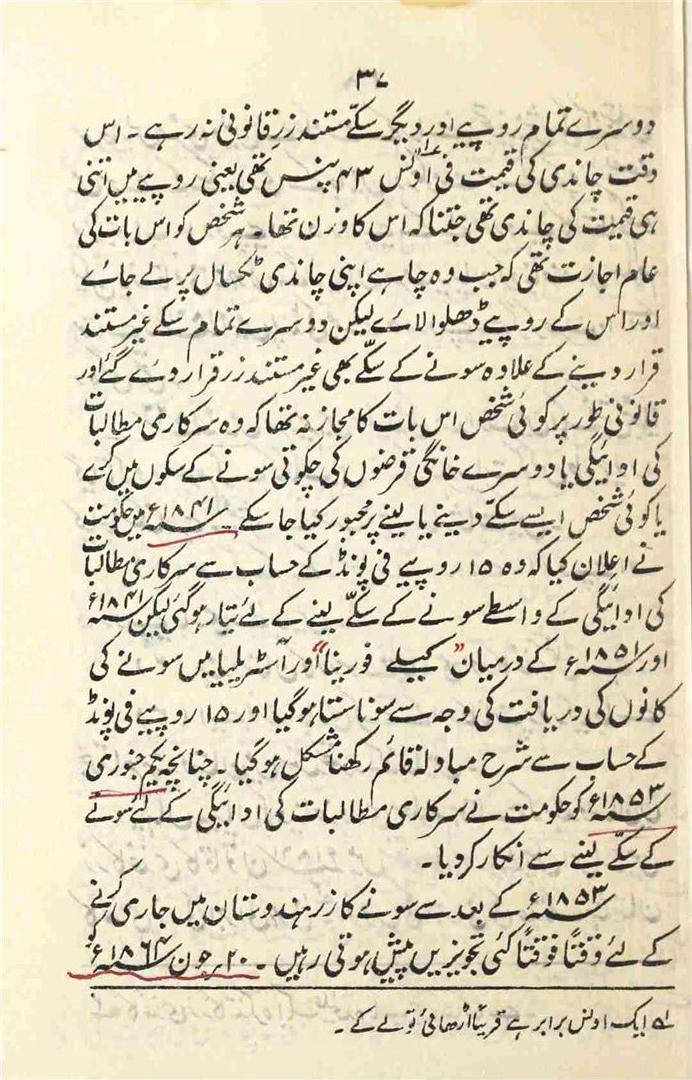 ۳۷
دوسرے تمام روپیے اور دیگر سکّے مستند زرِ قانونی نہ رہے ۔ اس
وقت چاندی کی قیمت فی اونس ۱ ۴۳ پنس تھی یعنی روپیے میں اتنی
ہی قیمت کی چاندی تھی جتنا کہ اس کا وزن تھا ۔ ہر شخص کو اس بات کی
عام اجازت تھی کہ جب وہ چاہے اپنی چاندی ٹکسال پر لے جائے
اور اس کے روپیے ڈھلوا لائے لیکن دوسرے تمام سکے غیر مستند
قرار دینے کے علاوہ سونے کے سکّے بھی غیر مستند زر قرار دۓ گئے اور
قانونی طور پر کوئی شخص اس بات کا مجاز نہ تھا کہ وہ سرکاری مطالبات
کی ادائیگی یا دوسرے خانگی قرضوں کی چکوتی سونے کے سکوں میں کرے
یا کوئی شخص ایسے سکّے دینے یا لینے پر مجبور کیا جا سکے ۔ سنہ ۱۸۴۱ء میں حکومت
نے اعلان کیا کہ وہ ۱۵ روپیے فی پونڈ کے حساب سے سرکاری مطالبات
کی ادائیگی کے واسطے سونے کے سکّے لینے کے لئے تیار ہوگئی لیکن سنہ ۱۸۴۱ء
اور سنہ ۱۸۵۱ء کے درمیان ”کیلے فورینا“ اور آسٹریلیا میں سونے کی
کانوں کی دریافت کی وجہ سے سونا سستا ہوگیا اور ۱۵ روپیے فی پونڈ
کے حساب سے شرح مبادلہ قائم رکھنا مشکل ہوگیا ۔ چنانچہ یکم جنوری
سنہ ۱۸۵۳ء کو حکومت نے سرکاری مطالبات کی ادائیگی کے لئے سونے
کے سکّے لینے سے انکار کر دیا ۔
سنہ ۱۸۵۳ء کے بعد سے سونے کا زر ہندوستان میں جاری کرنے
کے لئے وقتاً فوقتاً کئی تجویزیں پیش ہوتی رہیں ۔ ۲۰ جون سنہ ۱۸۶۴ء کو
۱ے ایک اونس برابر ہے قریباً اڑھائی تولے کے ۔